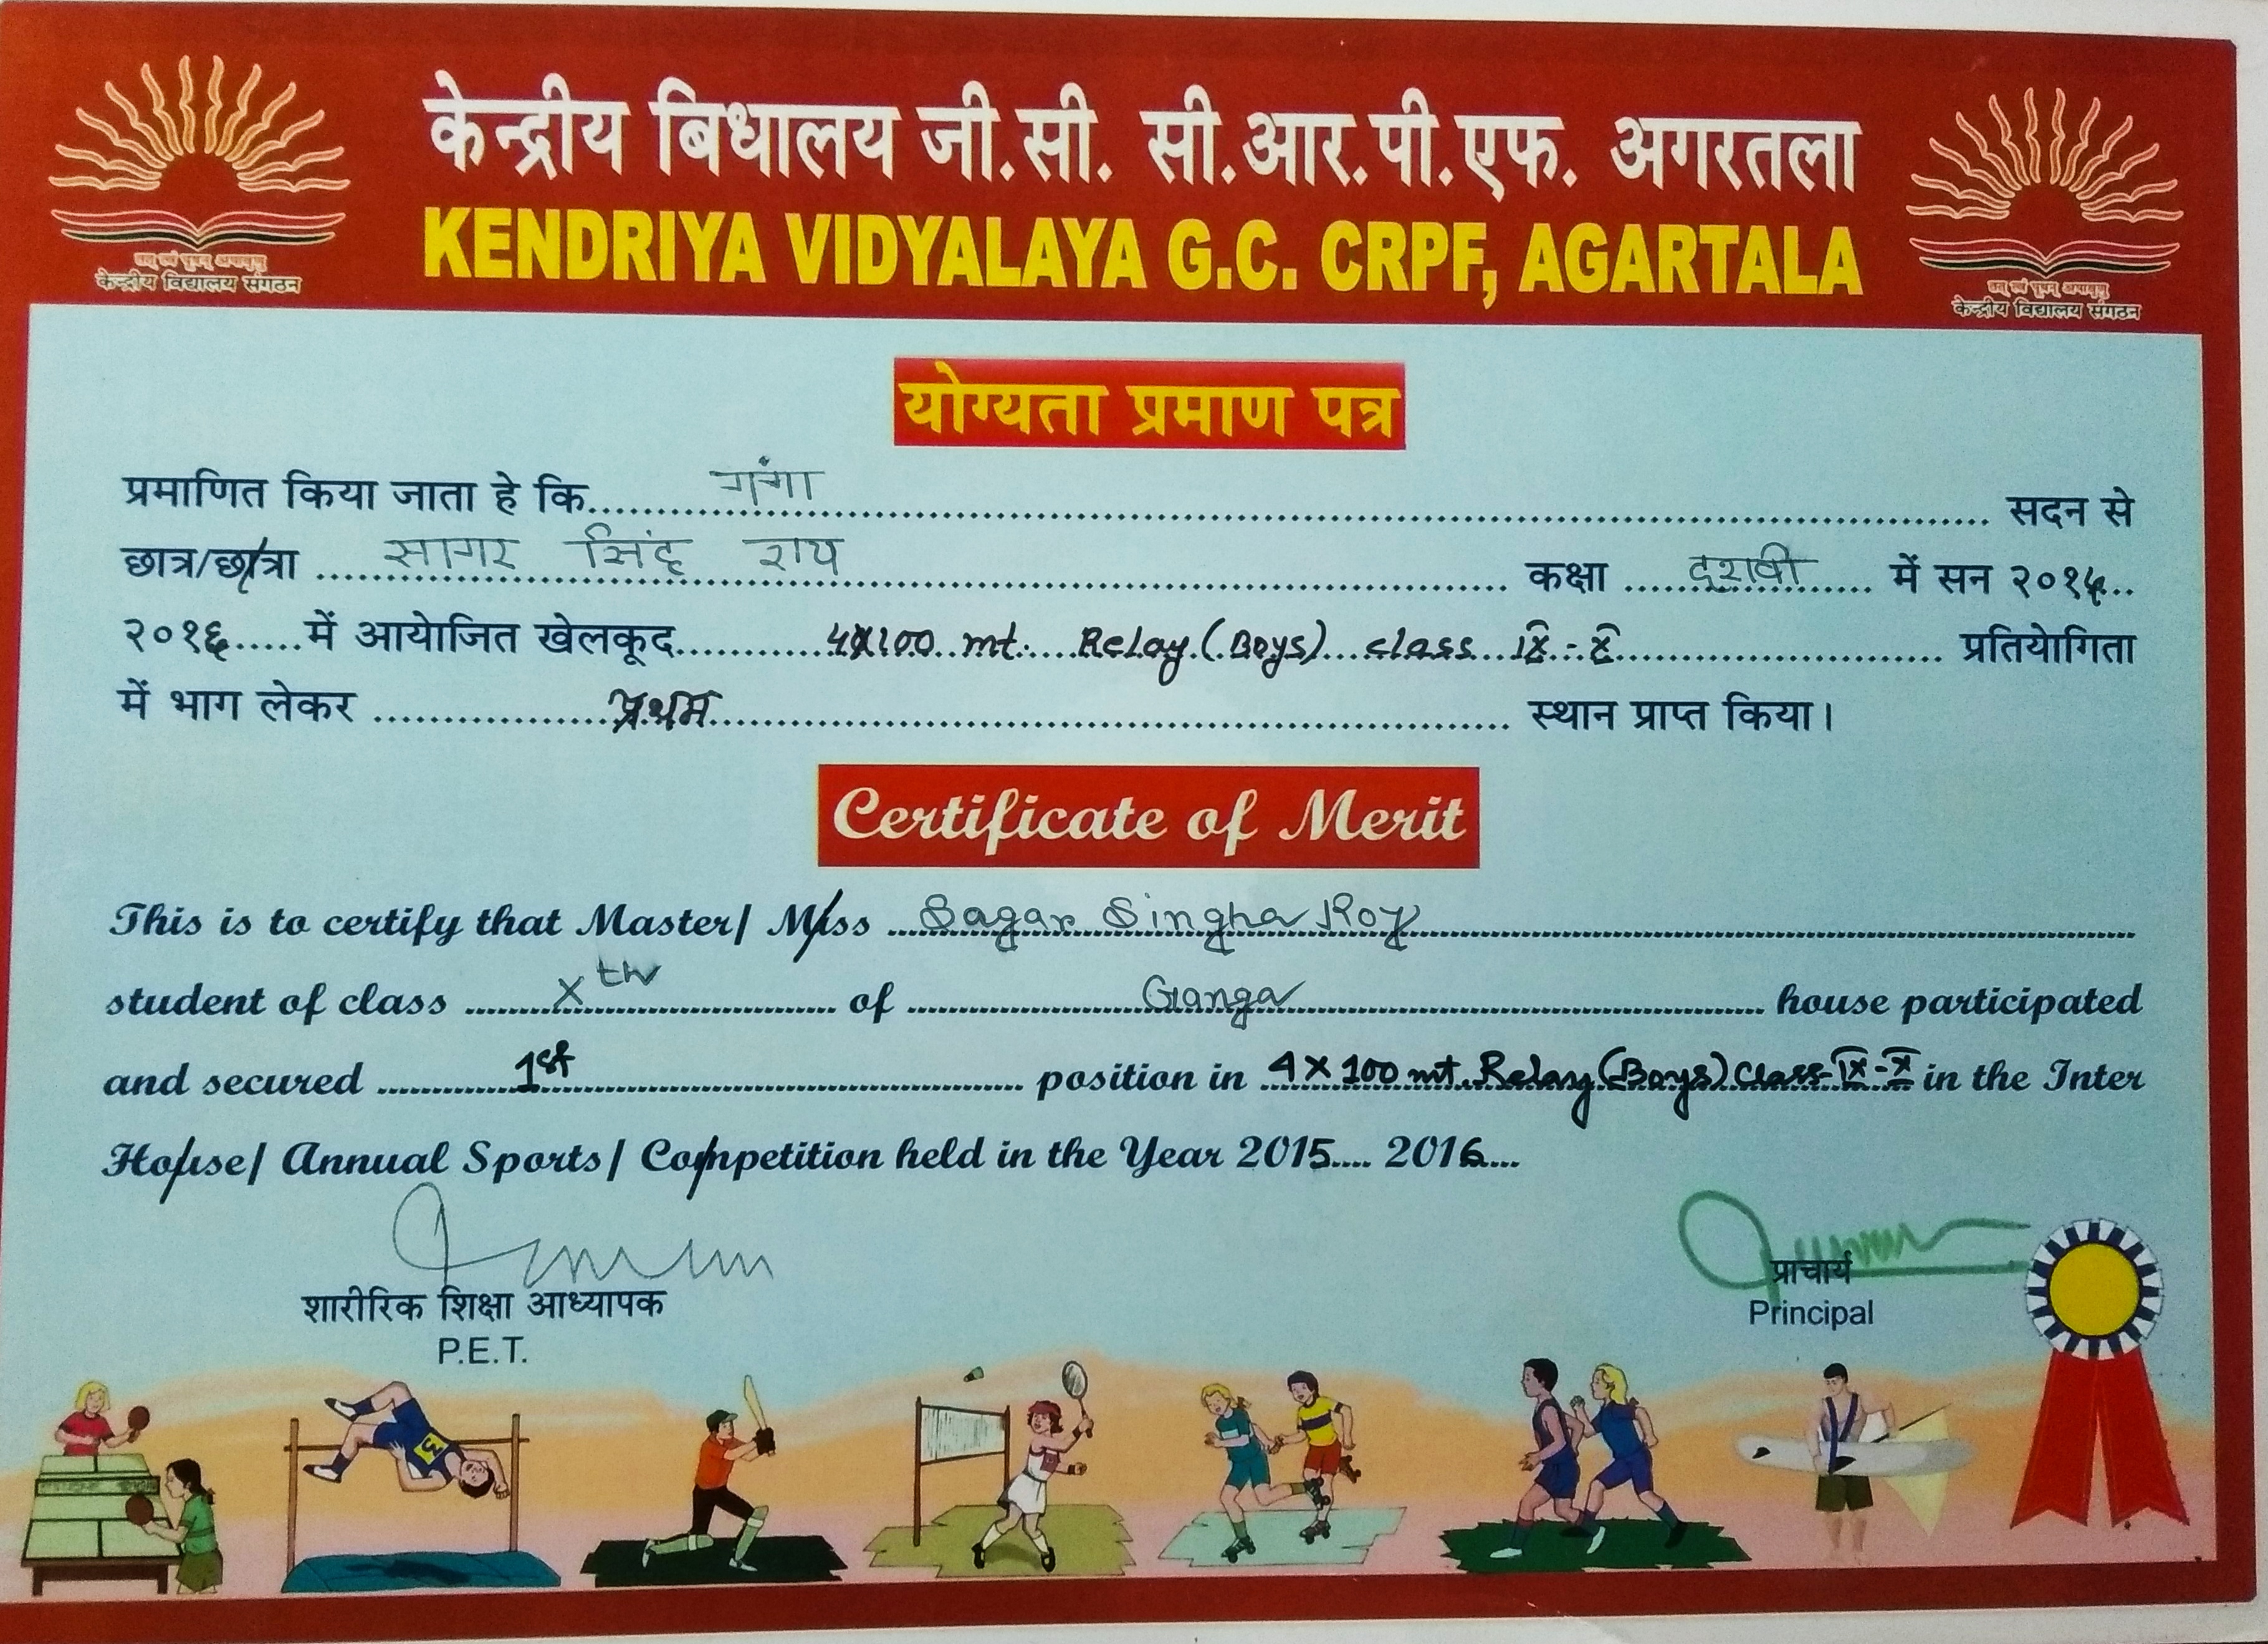 केन्द्रीय बिधालय जी.सी. सी.आर.पी.एफ. अगरतला
KENDRIYA VIDYALAYA G.C. CRPF, AGARTALA
केन्द्रीय विद्यालय संगठन
केन्द्रीय विद्यालय संगठन
योग्यता प्रमाण पत्र
प्रमाणित किया जाता हे कि गंगा सदन से
छात्र/छात्रा सागर सिंह राय कक्षा दशवी में सन २०१५
२०१६ में आयोजित खेलकूद 4X100 mt. Relay (Boys) class IX - X प्रतियोगिता
में भाग लेकर प्रथम स्थान प्राप्त किया।
Certificate of Merit
This is to certify that Master/ Miss Sagar Singha Roy
student of class Xth of Ganga house participated
and secured 1st position in 4X100 mt. Relay (Boys) Class-IX-X in the Inter
House/ Annual Sports/ Competition held in the Year 2015.... 2016...
शारीरिक शिक्षा आध्यापक
P.E.T.
प्राचार्य
Principal
3